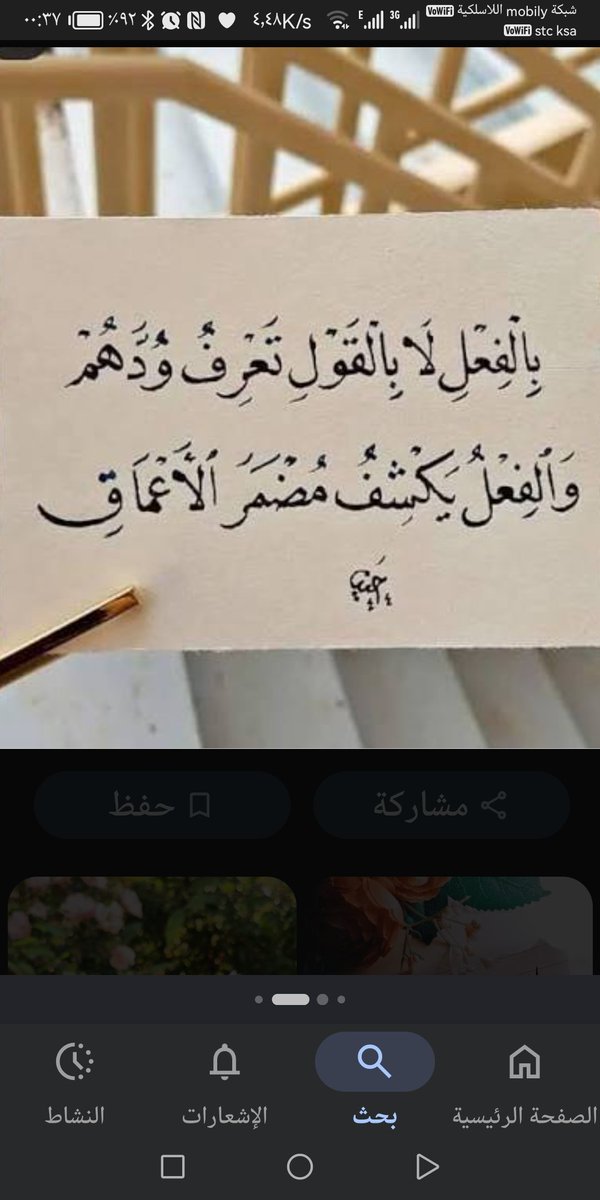 شبكة mobily اللاسلكية VoWiFi
VoWiFi stc ksa
3G
E
٤,٤٨K/s
٪٩٢
٠٠:٣٧
بِالْفِعْلِ لَا بِالْقَوْلِ تَعْرِفُ وُدَّهُمْ
وَالْفِعْلُ يَكْشِفُ مُضْمَرَ الْأَعْمَاقِ
مشاركة
حفظ
الصفحة الرئيسية
بحث
الإشعارات
النشاط